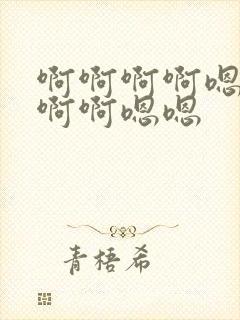 啊啊啊啊嗯
啊啊嗯嗯
青梧希